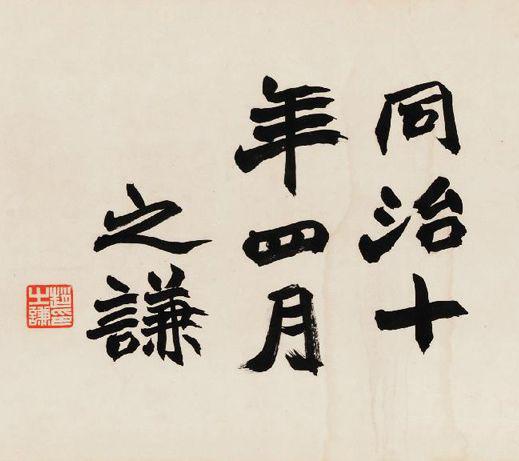 同治十
年四月
之謙
趙之謙印